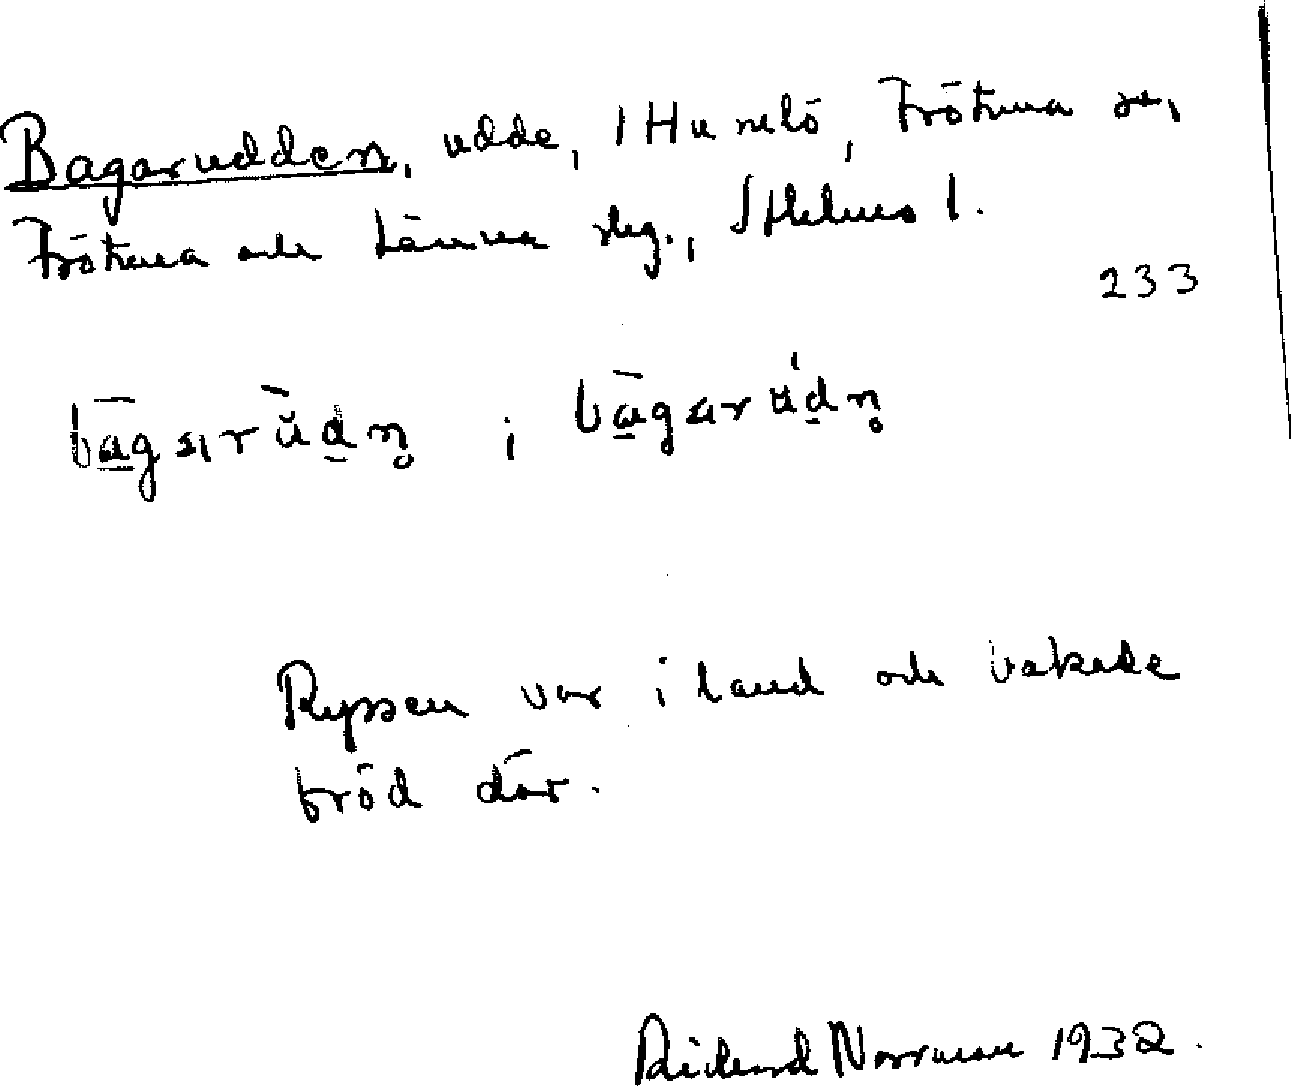 Bagarudden, udde, 1 Huselö, Frötuna sn,
Frötuna och Länna skg., Sthlms l.
233
Ryssen var i land och bakade
bröd där.
Rickard Norrman 1932.